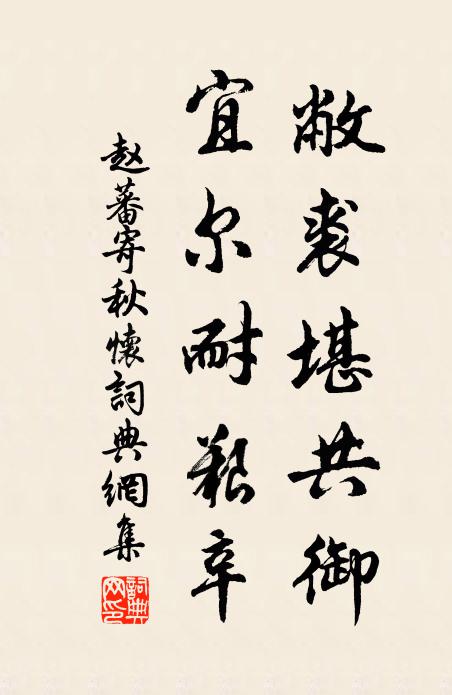 敝裘堪共御
宜尔耐艰辛
赵蕃寄秋怀詞典網集
詞典网印